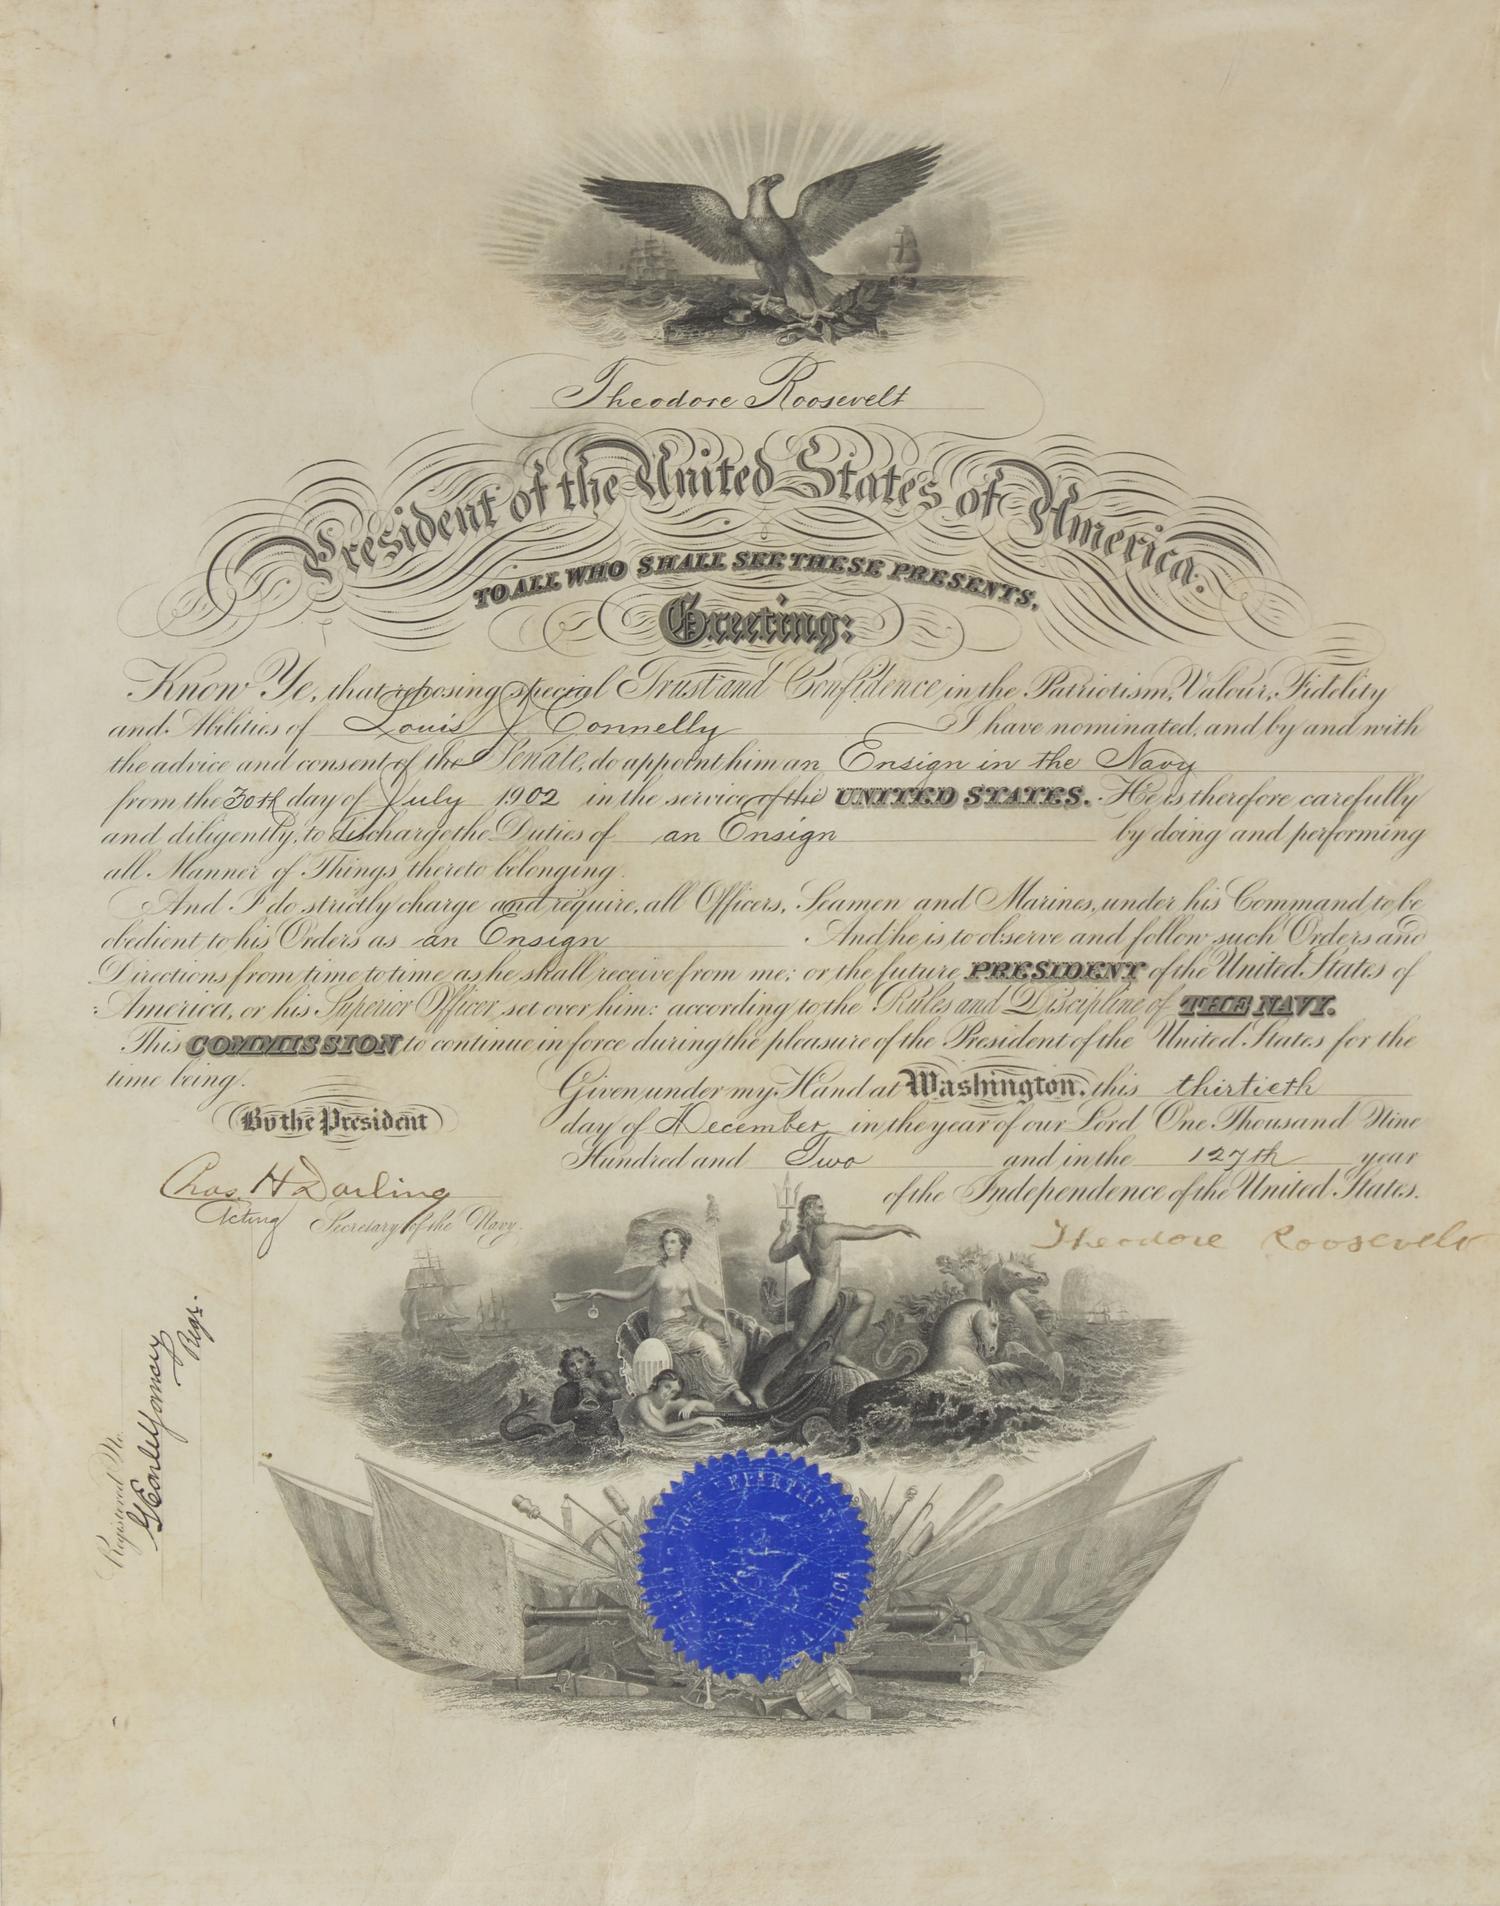 Theodore Roosevelt
President of the United States of America.
TO ALL WHO SHALL SEE THESE PRESENTS,
Greeting:
Know Ye, that reposing special Trust and Confidence in the Patriotism, Valour, Fidelity
and Abilities of Louis J Connelly I have nominated, and by and with
the advice and consent of the Senate, do appoint him an Ensign in the Navy
from the 30th day of July 1902 in the service of the UNITED STATES. He is therefore carefully
and diligently, to discharge the Duties of an Ensign by doing and performing
all Manner of Things thereto belonging.
And I do strictly charge and require, all Officers, Seamen and Marines, under his Command to be
obedient to his Orders as an Ensign And he is to observe and follow such Orders and
Directions from time to time as he shall receive from me; or the future PRESIDENT of the United States of
America, or his Superior Officer set over him: according to the Rules and Discipline of THE NAVY.
This COMMISSION to continue in force during the pleasure of the President of the United States for the
time being.
Given under my Hand at Washington, this thirtieth
day of December in the year of our Lord One Thousand Nine
Hundred and Two and in the 127th year
of the Independence of the United States.
By the President
Theodore Roosevelt
Chas. H Darling
Acting Secretary of the Navy.
Registered No.
Regr.
NAVY DEPARTMENT